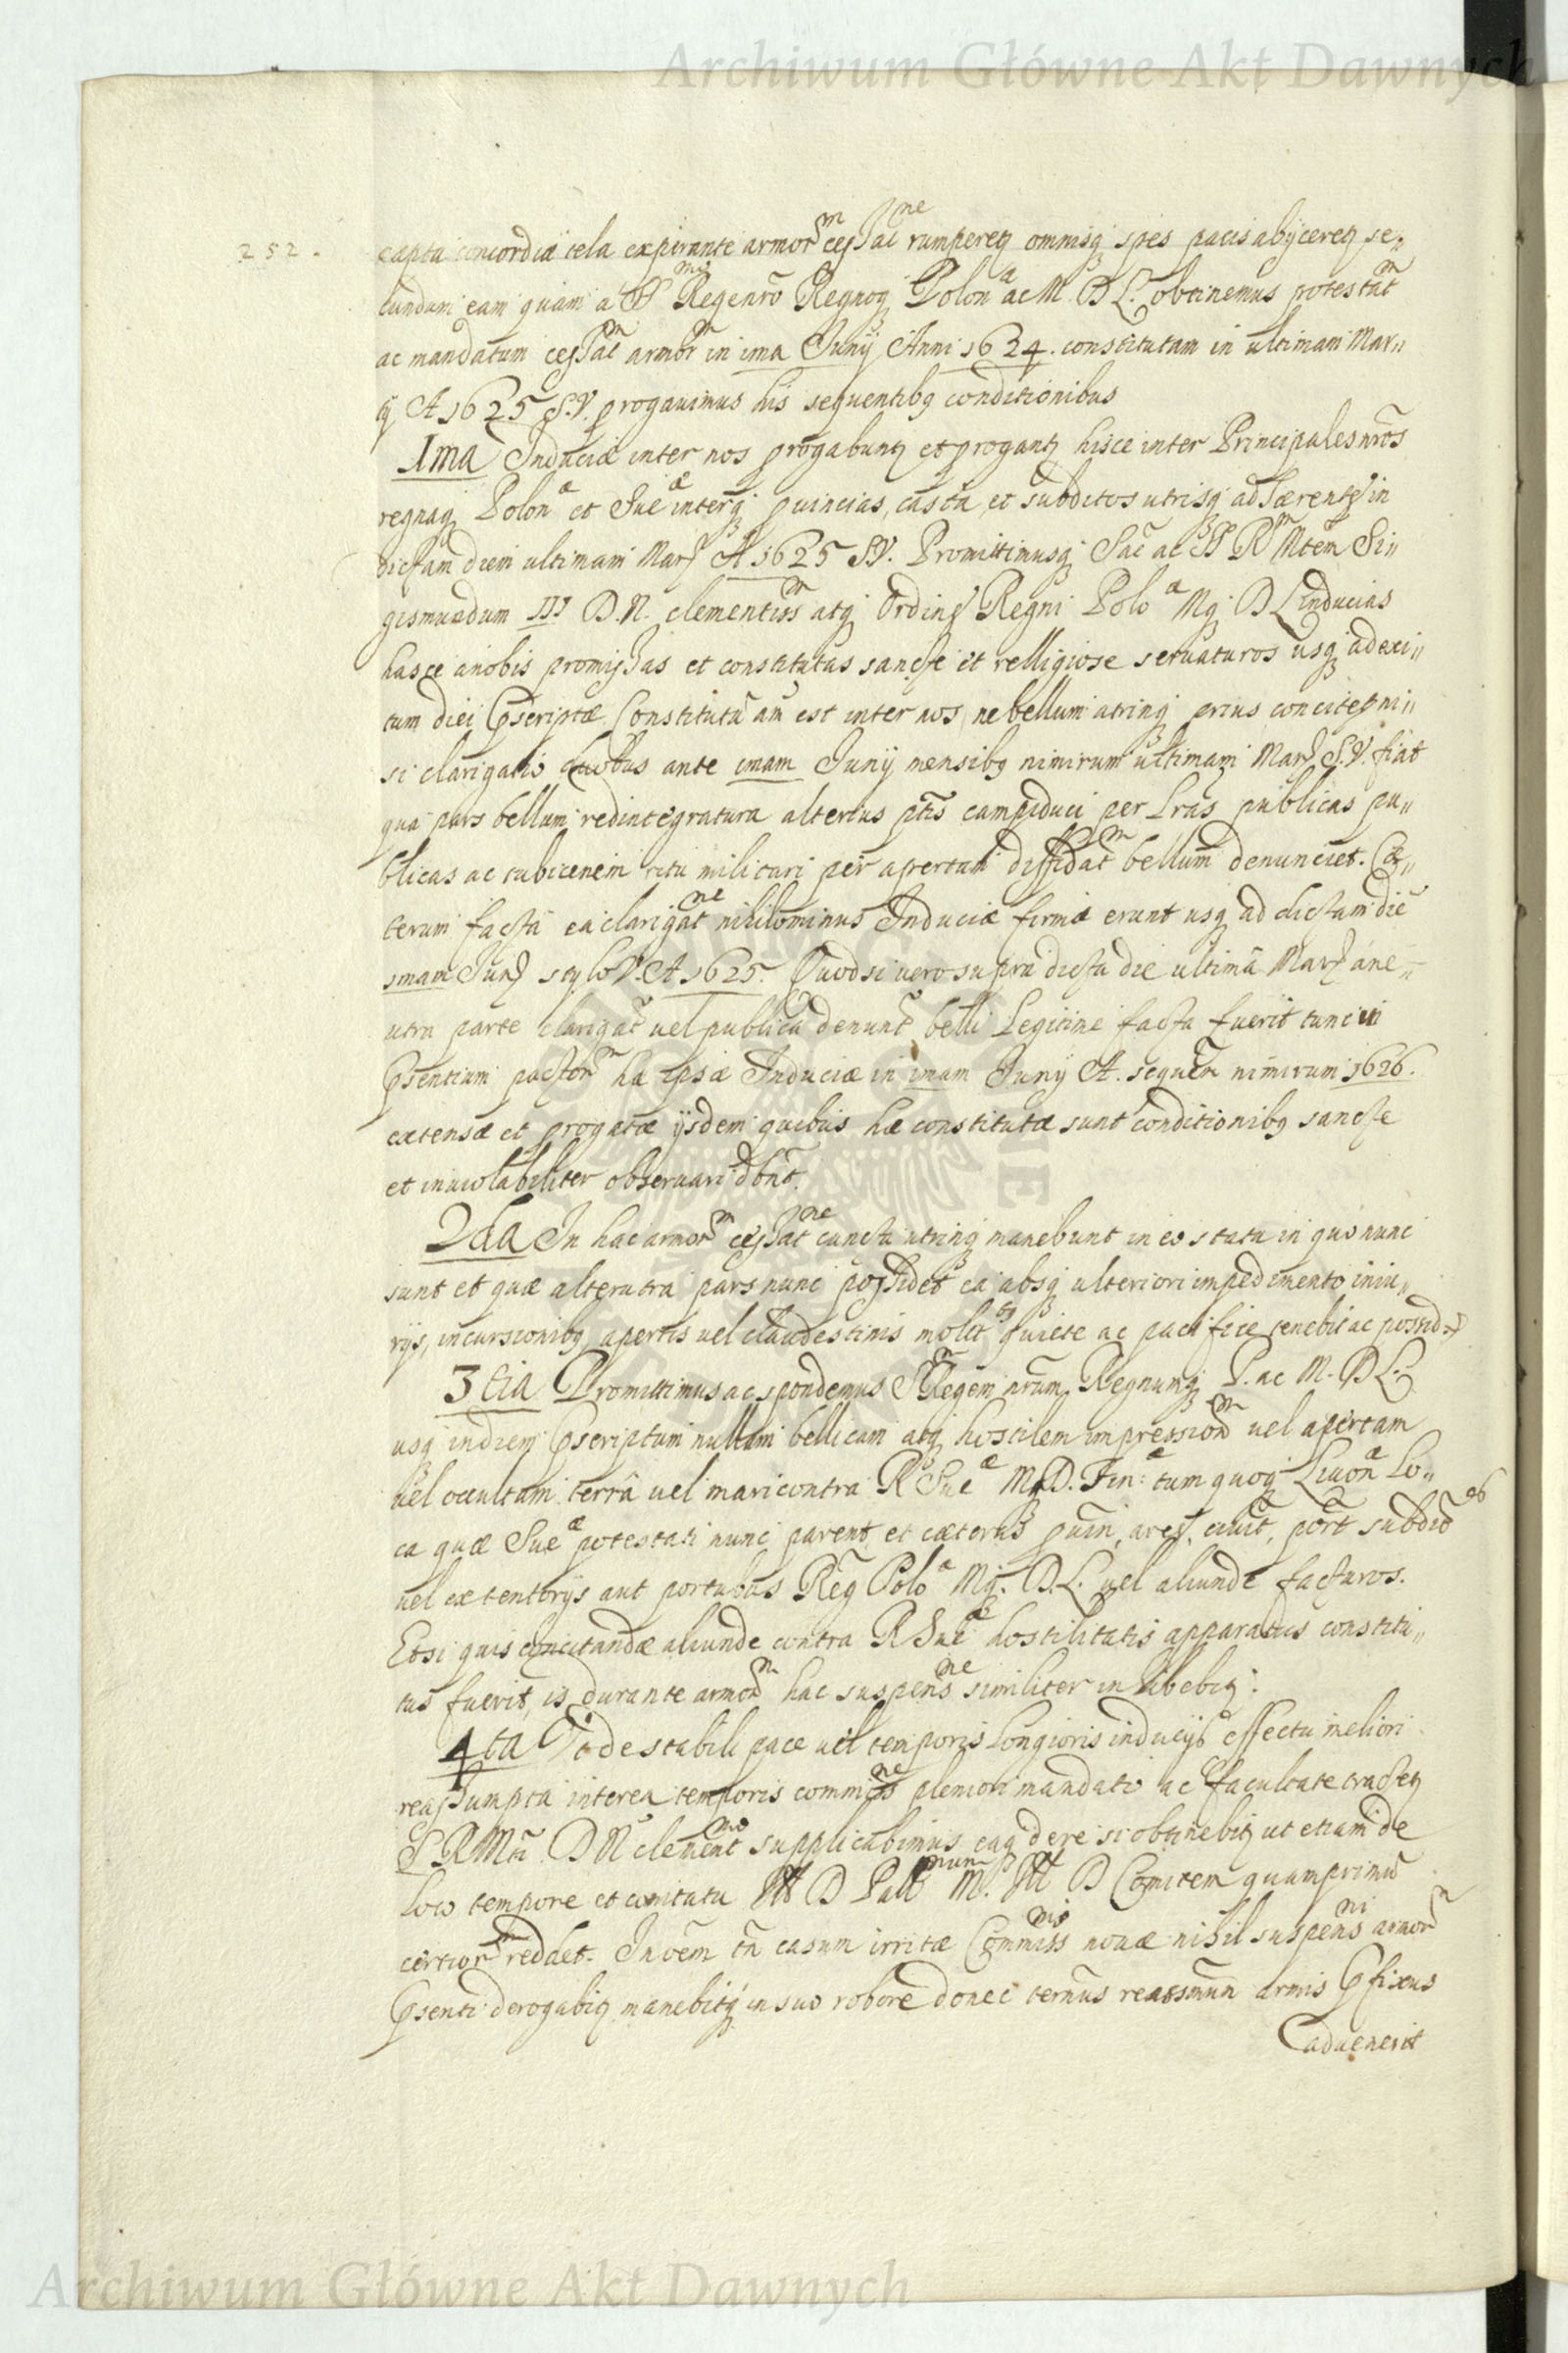 Archiwum Główne Akt Dawnych
252.
capta concordiæ tela expirante armor^m cessat^ne rumperetq omnisq spes pacis abijceretq se„
cundum eam quam a S^mo Rege nrõ Regnoq Polon^æ ac M. D L. obtinemus potestat^m
ac mandatum cessat^m armor^m in ima Junij Anni 1624. constitutam in ultimam Mar„
tij A 1625 S.V. progauimus his sequentibq conditionibus
Ima Induciæ inter nos progabuntq et progantq hisce inter Principales nrõs
regnaq Polon^æ et Sue^æ interq puincias, castra, et subditos utrisq adhærentes in
dictam diem ultimam Marq A 1625 SV. Promittimusq Sac ac S R^m Mtem Si„
gismundum III D.N. clementiss^m atq Ordines Regni Polo^æ Mq D L inducias
hasce a nobis promissas et constitutas sancte et relligiose seruaturos usq ad exi„
tum diei pscriptæ Constitutũ aũt est inter nos, ne bellum utrinq prius concitetq ni„
si clarigatio duobus ante imam Junij mensibq nimirum ultimam Marq S.V. fiat
qua pars bellum redintegratura alterius ptis campiduci per Lrãs publicas pu„
blicas ac tubicenem ritu militari per apertam diffidat^m bellum denunciet. Cæ„
terum facta ea clarigat^ne nihilominus Induciæ firmæ erunt usq ad dictam diẽ
imam Junq stylo V. A 1625. Quod si vero supra dicta die ultimâ Marq a ne„
utra parte clarigat uel publica denunt belli Legitime facta fuerit tunc in
psentium pactor^m hæ ipsæ Induciæ in imam Junij A. sequẽn nimirum 1626.
extensæ et progatæ ijsdem quibus hæ constitutæ sunt conditionibq sancte
et inuiolabiliter obseruari dbñt.
2da In hac armor^m cessat^ne cuncti utrinq manebunt in eo statu in quo nunc
sunt et quæ alterutra pars nunc possidet ea absq ulteriori impedimento iniu„
rijs, incursionibq apertis uel clandestinis molit^bq quiete ac pacifice tenebit ac possid
3tia Promittimus ac spondemus S Regem nrũm Regnumq P. ac M. D L.
usq in diem pscriptum nullam bellicam atq hostilem impression^m uel apertam
uel occultam terrâ uel mari contra R Sue^æ MqD. Fin:^æ tum quoq Liuon^æ Lo„
ca quæ Sue^æ potestati nunc parent et cæteras puin, arces, ciuit, port subdit^os
uel ex tentorijs aut portubus Reg Polo^æ Mq. D.L. uel aliunde facturos.
Et si quis concitandæ aliunde contra R Sue^æ hostilitatis apparatus constitu„
tus fuerit, is durante armor^m hac suspens^ne similiter inhibebitq:
4ta Ut de stabili pace uel temporis Longioris inducijs effectu meliori
reassumpta interea temporis commiss^ne pleniori mandato ac facultate tractetq
S. R Mti D N clement^mo supplicabimus eaq de re si obtinebitq ut etiam de
Loco tempore et comitatu Ill D Pall^num M. Ill D Comitem quamprimũ
certior^m reddet. In oẽm tñ casum irritæ Commiss^nis nouæ nihil suspens^ni armor^m
psenti derogabitq manebitq in suo robore donec terminus reassmen armis pfixus
aduenerit
Archiwum Główne Akt Dawnych